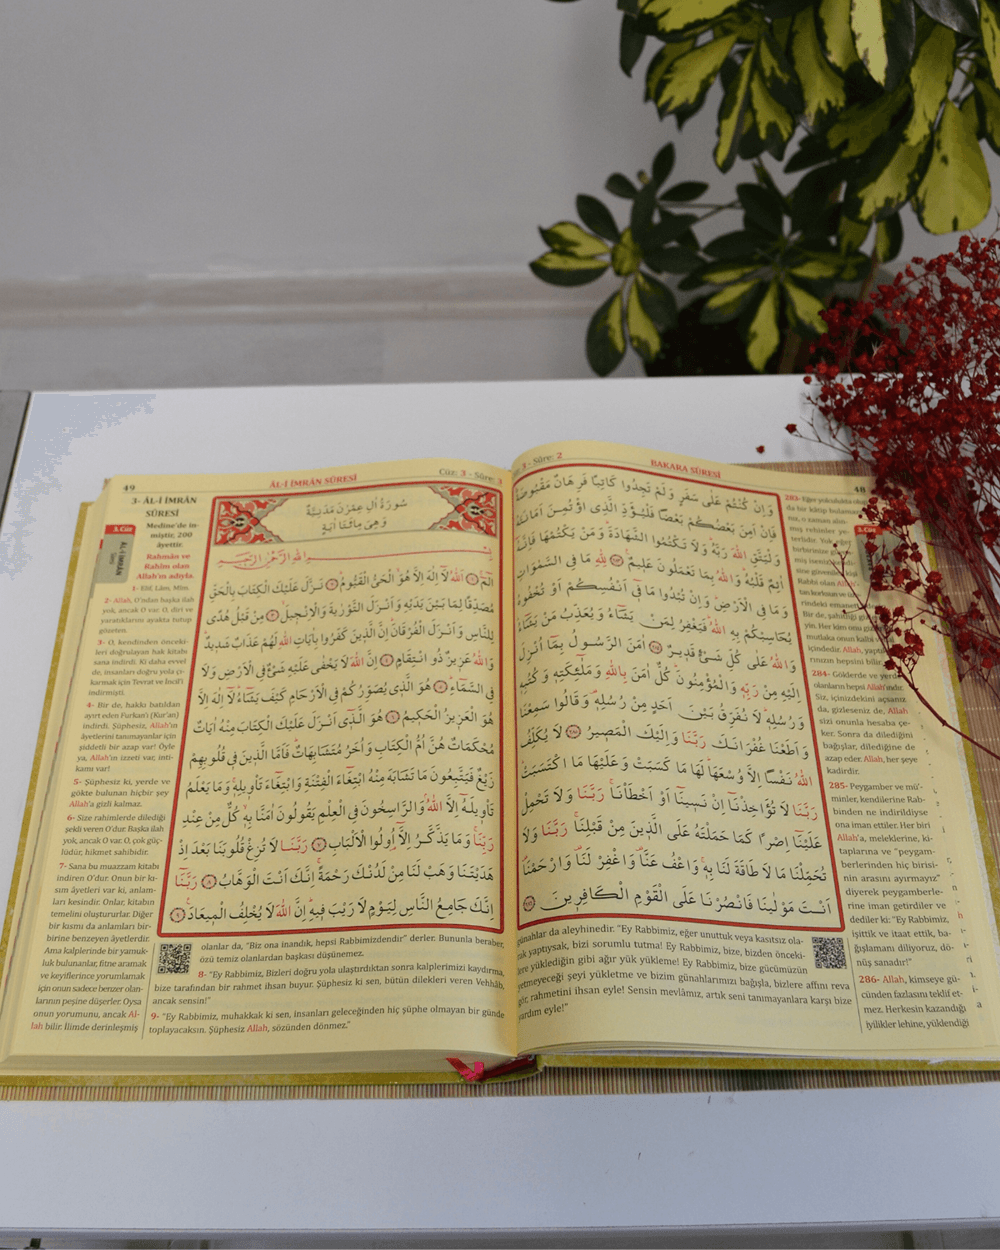 3 - Sûre: 2 BAKARA SÛRESİ 48
وَاِنْ كُنْتُمْ عَلٰى سَفَرٍ وَلَمْ تَجِدُوا كَاتِبًا فَرِهَانٌ مَقْبُوضَةٌ
فَاِنْ اَمِنَ بَعْضُكُمْ بَعْضًا فَلْيُؤَدِّ الَّذِى اؤْتُمِنَ اَمَانَتَهُ
وَلْيَتَّقِ اللّٰهَ رَبَّهُ وَلَا تَكْتُمُوا الشَّهَادَةَ وَمَنْ يَكْتُمْهَا فَاِنَّهُ
اٰثِمٌ قَلْبُهُ وَاللّٰهُ بِمَا تَعْمَلُونَ عَلِيمٌ ﴿٢٨٣﴾ لِلّٰهِ مَا فِى السَّمٰوَاتِ
وَمَا فِى الْاَرْضِ وَاِنْ تُبْدُوا مَا فِى اَنْفُسِكُمْ اَوْ تُخْفُوهُ
يُحَاسِبْكُمْ بِهِ اللّٰهُ فَيَغْفِرُ لِمَنْ يَشَاءُ وَيُعَذِّبُ مَنْ يَشَاءُ
وَاللّٰهُ عَلٰى كُلِّ شَىْءٍ قَدِيرٌ ﴿٢٨٤﴾ اٰمَنَ الرَّسُولُ بِمَا اُنْزِلَ
اِلَيْهِ مِنْ رَبِّهِ وَالْمُؤْمِنُونَ كُلٌّ اٰمَنَ بِاللّٰهِ وَمَلٰئِكَتِهِ وَكُتُبِهِ
وَرُسُلِهِ لَا نُفَرِّقُ بَيْنَ اَحَدٍ مِنْ رُسُلِهِ وَقَالُوا سَمِعْنَا
وَاَطَعْنَا غُفْرَانَكَ رَبَّنَا وَاِلَيْكَ الْمَصِيرُ ﴿٢٨٥﴾ لَا يُكَلِّفُ
اللّٰهُ نَفْسًا اِلَّا وُسْعَهَا لَهَا مَا كَسَبَتْ وَعَلَيْهَا مَا اكْتَسَبَتْ
رَبَّنَا لَا تُؤَاخِذْنَا اِنْ نَسِينَا اَوْ اَخْطَأْنَا رَبَّنَا وَلَا تَحْمِلْ
عَلَيْنَا اِصْرًا كَمَا حَمَلْتَهُ عَلَى الَّذِينَ مِنْ قَبْلِنَا رَبَّنَا وَلَا
تُحَمِّلْنَا مَا لَا طَاقَةَ لَنَا بِهِ وَاعْفُ عَنَّا وَاغْفِرْ لَنَا وَارْحَمْنَا
اَنْتَ مَوْلٰينَا فَانْصُرْنَا عَلَى الْقَوْمِ الْكَافِرِينَ ﴿٢٨٦﴾
3. Cüz
283- Eğer yolculukta olup
da bir kâtip bulamaz
284- Göklerde ve yerde
olanların hepsi Allah'ındır.
Siz, içinizdekini açsanız
da, gizleseniz de, Allah
sizi onunla hesaba çe-
ker. Sonra da dilediğini
bağışlar, dilediğine de
azap eder. Allah, her şeye
kadirdir.
285- Peygamber ve mü'-
minler, kendilerine Rab-
binden ne indirildiyse
ona iman ettiler. Her biri
Allah'a, meleklerine, ki-
taplarına ve "peygam-
berlerinden hiç birisi-
nin arasını ayırmayız"
diyerek peygamberle-
rine iman getirdiler ve
dediler ki: "Ey Rabbimiz,
işittik ve itaat ettik, ba-
ğışlamanı diliyoruz, dö-
nüş sanadır!"
286- Allah, kimseye gü-
cünden fazlasını teklif et-
mez. Herkesin kazandığı
iyilikler lehine, yüklendiği
günahlar da aleyhinedir. "Ey Rabbimiz, eğer unuttuk veya kasıtsız ola-
rak yaptıysak, bizi sorumlu tutma! Ey Rabbimiz, bize, bizden önceki-
lere yüklediğin gibi ağır yük yükleme! Ey Rabbimiz, bize gücümüzün
yetmeyeceği şeyi yükletme ve bizim günahlarımızı bağışla, bizlere affını reva
gör, rahmetini ihsan eyle! Sensin mevlâmız, artık seni tanımayanlara karşı bize
yardım eyle!"
49 ÂL-İ İMRÂN SÛRESİ Cüz: 3 - Sûre: 3
سُورَةُ اٰلِ عِمْرٰنَ مَدَنِيَّةٌ
وَهِىَ مِائَتَا اٰيَةٍ
بِسْمِ اللّٰهِ الرَّحْمٰنِ الرَّحِيمِ
الٓمٓ ﴿١﴾ اَللّٰهُ لَا اِلٰهَ اِلَّا هُوَ الْحَىُّ الْقَيُّومُ ﴿٢﴾ نَزَّلَ عَلَيْكَ الْكِتَابَ بِالْحَقِّ
مُصَدِّقًا لِمَا بَيْنَ يَدَيْهِ وَاَنْزَلَ التَّوْرٰيةَ وَالْاِنْجِيلَ ﴿٣﴾ مِنْ قَبْلُ هُدًى
لِلنَّاسِ وَاَنْزَلَ الْفُرْقَانَ اِنَّ الَّذِينَ كَفَرُوا بِاٰيَاتِ اللّٰهِ لَهُمْ عَذَابٌ شَدِيدٌ
وَاللّٰهُ عَزِيزٌ ذُو انْتِقَامٍ ﴿٤﴾ اِنَّ اللّٰهَ لَا يَخْفٰى عَلَيْهِ شَىْءٌ فِى الْاَرْضِ وَلَا
فِى السَّمَاءِ ﴿٥﴾ هُوَ الَّذِى يُصَوِّرُكُمْ فِى الْاَرْحَامِ كَيْفَ يَشَاءُ لَا اِلٰهَ اِلَّا
هُوَ الْعَزِيزُ الْحَكِيمُ ﴿٦﴾ هُوَ الَّذِى اَنْزَلَ عَلَيْكَ الْكِتَابَ مِنْهُ اٰيَاتٌ
مُحْكَمَاتٌ هُنَّ اُمُّ الْكِتَابِ وَاُخَرُ مُتَشَابِهَاتٌ فَاَمَّا الَّذِينَ فِى قُلُوبِهِمْ
زَيْغٌ فَيَتَّبِعُونَ مَا تَشَابَهَ مِنْهُ ابْتِغَاءَ الْفِتْنَةِ وَابْتِغَاءَ تَأْوِيلِهِ وَمَا يَعْلَمُ
تَأْوِيلَهُ اِلَّا اللّٰهُ وَالرَّاسِخُونَ فِى الْعِلْمِ يَقُولُونَ اٰمَنَّا بِهِ كُلٌّ مِنْ عِنْدِ
رَبِّنَا وَمَا يَذَّكَّرُ اِلَّا اُولُوا الْاَلْبَابِ ﴿٧﴾ رَبَّنَا لَا تُزِغْ قُلُوبَنَا بَعْدَ اِذْ
هَدَيْتَنَا وَهَبْ لَنَا مِنْ لَدُنْكَ رَحْمَةً اِنَّكَ اَنْتَ الْوَهَّابُ ﴿٨﴾ رَبَّنَا
اِنَّكَ جَامِعُ النَّاسِ لِيَوْمٍ لَا رَيْبَ فِيهِ اِنَّ اللّٰهَ لَا يُخْلِفُ الْمِيعَادَ ﴿٩﴾
3. Cüz
ÂL-İ İMRÂN
3- ÂL-İ İMRÂN
SÛRESİ
Medine'de in-
miştir, 200
âyettir.
Rahmân ve
Rahîm olan
Allah'ın adıyla.
1- Elif, Lâm, Mîm.
2- Allah, O'ndan başka ilah
yok, ancak O var. O, diri ve
yaratıklarını ayakta tutup
gözeten.
3- O, kendinden önceki-
leri doğrulayan hak kitabı
sana indirdi. Ki daha evvel
de, insanları doğru yola çı-
karmak için Tevrat ve İncil'i
indirmişti.
4- Bir de, hakkı batıldan
ayırt eden Furkan'ı (Kur'an)
indirdi. Şüphesiz, Allah'ın
âyetlerini tanımayanlar için
şiddetli bir azap var! Öyle
ya, Allah'ın izzeti var, inti-
kamı var!
5- Şüphesiz ki, yerde ve
gökte bulunan hiçbir şey
Allah'a gizli kalmaz.
6- Size rahimlerde dilediği
şekli veren O'dur. Başka ilah
yok, ancak O var. O, çok güç-
lüdür, hikmet sahibidir.
7- Sana bu muazzam kitabı
indiren O'dur. Onun bir kı-
sım âyetleri var ki, anlam-
ları kesindir. Onlar, kitabın
temelini oluştururlar. Diğer
bir kısmı da anlamları bir-
birine benzeyen âyetlerdir.
Ama kalplerinde bir yamuk-
luk bulunanlar, fitne aramak
ve keyiflerince yorumlamak
için onun sadece benzer olan-
larının peşine düşerler. Oysa
onun yorumunu, ancak Al-
lah bilir. İlimde derinleşmiş
olanlar da, "Biz ona inandık, hepsi Rabbimizdendir" derler. Bununla beraber,
özü temiz olanlardan başkası düşünemez.
8- "Ey Rabbimiz, Bizleri doğru yola ulaştırdıktan sonra kalplerimizi kaydırma,
bize tarafından bir rahmet ihsan buyur. Şüphesiz ki sen, bütün dilekleri veren Vehhâb,
ancak sensin!"
9- "Ey Rabbimiz, muhakkak ki sen, insanları geleceğinden hiç şüphe olmayan bir günde
toplayacaksın. Şüphesiz Allah, sözünden dönmez."